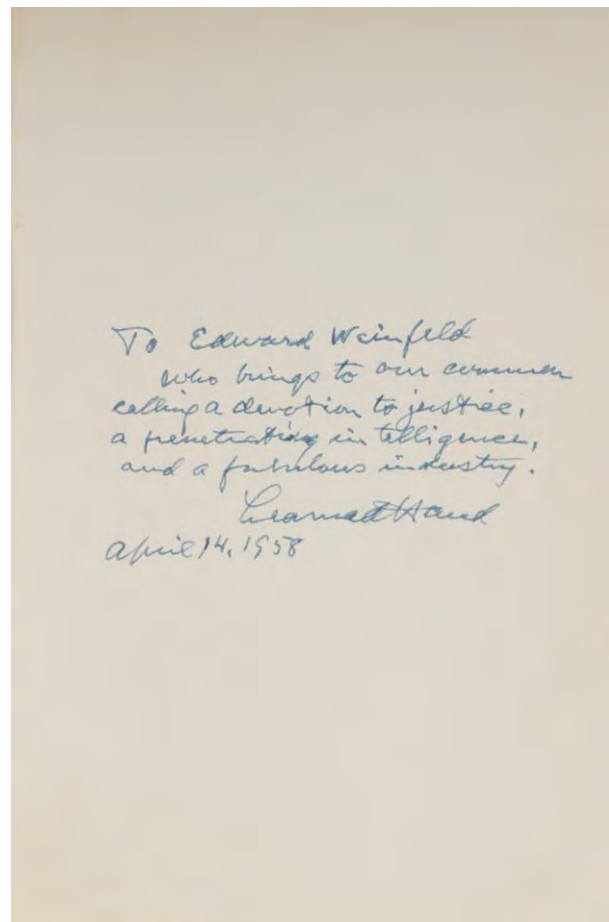 To Edward Weinfeld
who brings to our common
calling a devotion to justice,
a penetrating intelligence,
and a fabulous industry.
Learned Hand
April 14, 1958